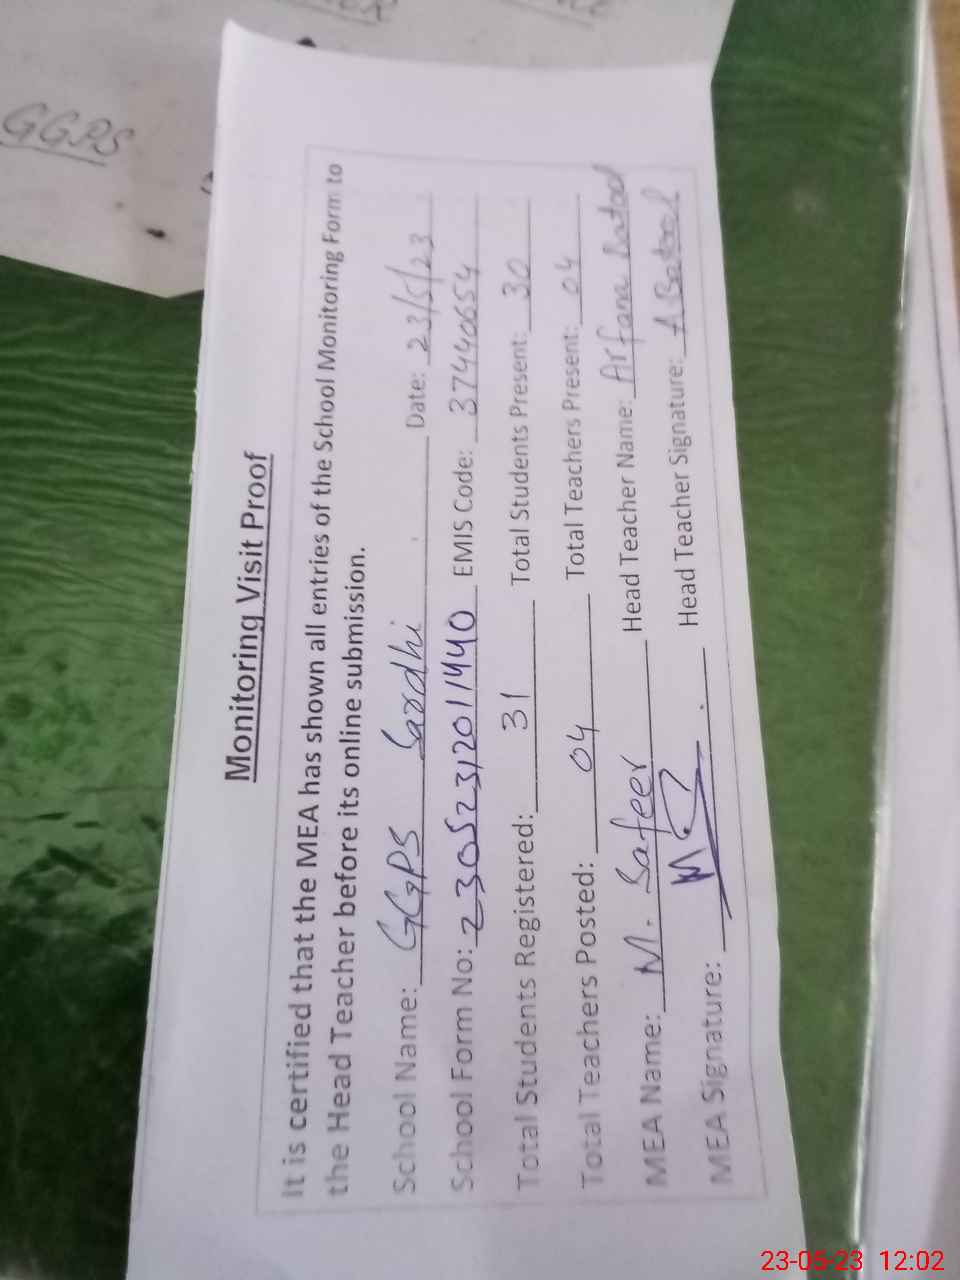 GGPS
Monitoring Visit Proof
It is certified that the MEA has shown all entries of the School Monitoring Form to
the Head Teacher before its online submission.
School Name: GGPS Sardhi Date: 23/5/23
School Form No: 2305232011440 EMIS Code: 37440654
Total Students Registered: 31 Total Students Present: 30
Total Teachers Posted: 04 Total Teachers Present: 04
MEA Name: M. Safeer Head Teacher Name: Arfana Batool
MEA Signature: Head Teacher Signature: A Batool
23-05-23 12:02